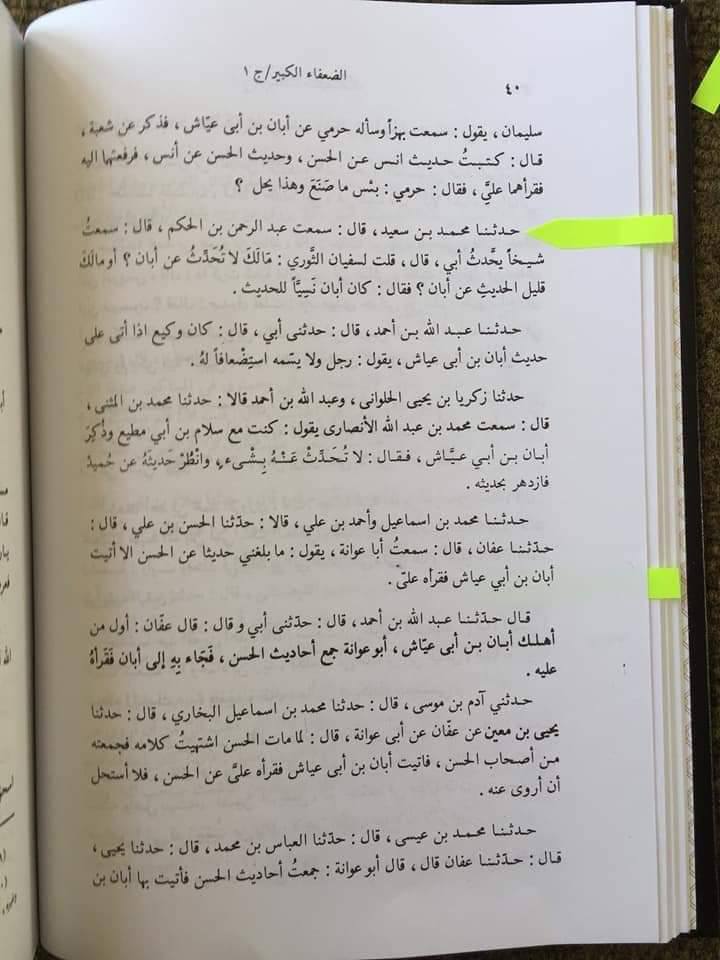 الضعفاء الكبير/ج ١
٤٠
سليمان ، يقول : سمعت بهزأ وسأله حرمي عن أبان بن أبى عيّاش ، فذكر عن شعبة ،
قال : كتبتُ حديث انس عن الحسن ، وحديث الحسن عن أنس ، فرفعتها اليه
فقرأهما عليَّ ، فقال : حرمي : بئس ما صَنَعَ وهذا يحل ؟
حدثنا محمد بن سعيد ، قال : سمعت عبد الرحمن بن الحكم ، قال : سمعتُ
شيخاً يحَّدثُ أبي ، قال ، قلت لسفيان الثَّوري : مَالَكَ لا تُحَدِّثُ عن أبان ؟ أومالَكَ
قليل الحديثِ عن أبان ؟ فقال : كان أبان نَسِيَّاً للحديث .
حدثنا عبد الله بن أحمد ، قال : حدثنى أبي ، قال : كان وكيع اذا أتى على
حديث أبان بن أبى عياش ، يقول : رجل ولا يسّمه استِضْعافاً لهُ .
حدثنا زكريا بن يحيى الحلوانى ، وعبد الله بن أحمد قالا : حدثنا محمد بن المثنى ،
قال : سمعت محمد بن عبد الله الأنصارى يقول : كنت مع سلام بن أبي مطيع وذُكِرَ
أبان بن أبي عيَّاش ، فقال : لا تُحَدِّثْ عَنْهُ بِشْىءٍ ، وانْظُرْ حَديثَهُ عن حُميدٌ
فازدهر بحديثه .
حدثنا محمد بن اسماعيل وأحمد بن علي ، قالا : حدّثنا الحسن بن علي ، قال :
حدّثنا عفان ، قال : سمعتُ أبا عوانة ، يقول : ما بلغني حديثا عن الحسن الا أتيت
أبان بن أبي عياش فقرأه علىّ .
قال حدّثنا عبد الله بن أحمد ، قال : حدّثنى أبي و قال : قال عفّان : أول من
أهلك أبان بن أبى عيّاش ، أبو عوانة جمع أحاديث الحسن ، فَجَاء بِهِ إلى أبان فَقَرأهُ
عليه .
حدثني آدم بن موسى ، قال : حدثنا محمد بن اسماعيل البخاري ، قال : حدثنا
يحيى بن معين عن عفّان عن أبى عوانة ، قال : لما مات الحسن اشتهيتُ كلامه فجمعته
من أصحاب الحسن ، فاتيت أبان بن أبى عياش فقرأه علىَّ عن الحسن ، فلا أستحل
أن أروى عنه .
حدثنا محمد بن عيسى ، قال : حدّثنا العباس بن محمد ، قال : حدثنا يحيى ،
قال : حدّثنا عفان قال ، قال أبو عوانة : جمعتُ أحاديث الحسن فأتيت بها أبان بن